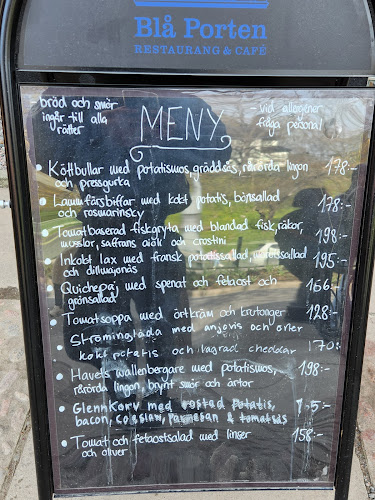 Blå Porten
RESTAURANG & CAFÉ
- bröd och smör
ingår till alla
rätter
MENY
- vid allergener
fråga personal
• Köttbullar med potatismos, gräddsås, rårörda lingon
och pressgurka 178:-
• Lammfärsbiffar med kokt potatis, bönsallad
och rosmarinsky 178:-
• Tomatbaserad fiskgryta med blandad fisk, räkor,
musslor, saffrans aioli och crostini 198:-
• Inkokt lax med fransk potatissallad,
och dillmajonäs 195:-
• Quichepaj med spenat och fetaost och
grönsallad 166:-
• Tomatsoppa med örtkräm och krutonger 128:-
• Strömminglåda med ansjovis och örter
kokt potatis och lagrad cheddar 170:-
• Havets wallenbergare med potatismos,
rårörda lingon, brynt smör och ärtor 198:-
• Glennkorv med rostad potatis,
bacon, Coleslaw, Parmesan & tomatsås
• Tomat och fetaostsallad med linser
och oliver 158:-